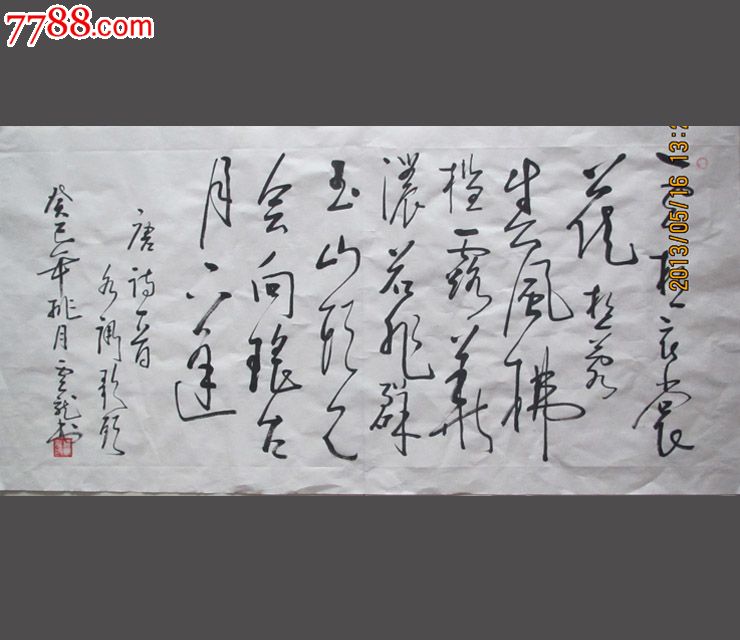 7788.com
2013/05/16 13:2
想衣裳
想容
風拂
槛露華
濃若非群
玉山頭見
会向瑶台
月下逢
唐詩一首
癸巳年桃月雲龍书